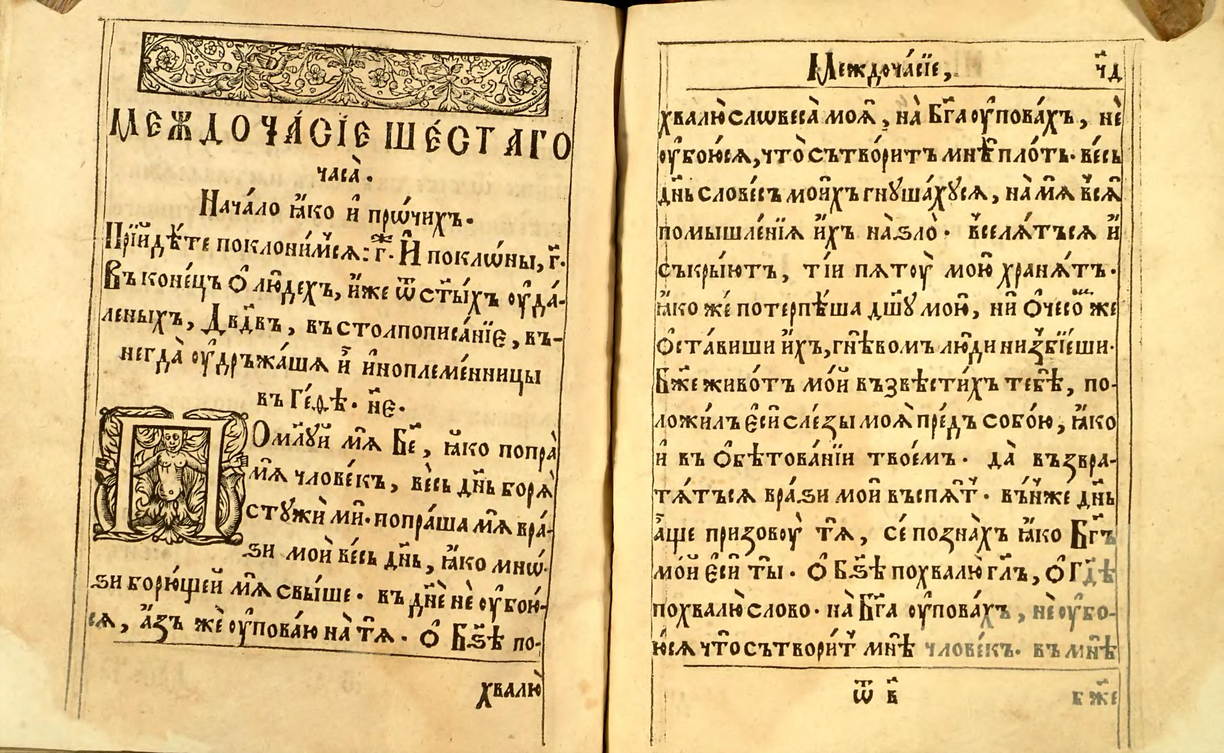 МЕЖДОЧА́СЇЕ ШЕ́СТАГО
часа̀.
Нача́ло ꙗ҆́ко и҆ прѡ́чихъ.
Прїйдѣ́те поклони́мсѧ: г҃. И҆ поклѡ́ны, г҃.
Въ коне́цъ ѡ҆ лю́дехъ, и҆́же ѿ ст҃ы́хъ ᲂу҆да́-
леныхъ, Дв҃дв, въ столпописа́нїе, въ-
негда̀ ᲂу҆дръжа́шѧ и҆̀ и҆ноплеме́нницы
въ Ге́ѳѣ. н҃е.
Поми́луй мѧ̀ Бе҃, ꙗ҆́ко попра̀
мѧ̀ человѣ́къ, ве́сь дн҃ь борѧ̀
стꙋжи́ ми. попра́ша мѧ̀ вра-
зѝ моѝ ве́сь дн҃ь, ꙗ҆́ко мнѡ́-
зи борю́щей мѧ̀ свы́ше. въ дн҃е не ᲂу҆бою́-
сѧ, а҆́зъ же ᲂу҆пова́ю на тѧ̀. ѡ҆ Бз҃ѣ по-
хвалю̀
Междоча́сїе, ч҃д
хвалю̀ словеса̀ моѧ̀, на Бг҃а ᲂу҆пова́хъ, не
ᲂу҆бою́сѧ, что̀ сътвори́тъ мнѣ̀ пло́ть. ве́сь
дн҃ь слове́съ мои́хъ гнꙋша́хꙋсѧ, на мѧ̀ всѧ̀
помышле́нїѧ и҆́хъ на ѕло̀. вселѧ́тъсѧ и҆
съкры́ютъ, ті́и пѧтоу̀ мою̀ хранѧ́тъ.
ꙗ҆́ко же потерпѣ́ша дш҃ꙋ мою̀, ни ѡ҆ чесо́м же
ѡ҆ста́виши и҆́хъ, гнѣ́вомъ лю́ди низбїе́ши.
Бж҃е живо́тъ мо́й възвѣсти́хъ тебѣ̀, по-
ложи́лъ є҆сѝ сле́зы моѧ̀ пре́дъ собо́ю, ꙗ҆́ко
и҆ въ ѡ҆бѣтова́нїи твое́мъ. да̀ възвра-
тѧ́тъсѧ вразѝ моѝ въспѧ́т. въ́ньже дн҃ь
а҆́ще призовоу̀ тѧ̀, се́ позна́хъ ꙗ҆́ко Бг҃ъ
мо́й є҆сѝ ты̀. ѡ҆ Бз҃ѣ похвалю̀ гл҃ъ, ѡ҆ Гд҃ѣ
похвалю̀ сло́во. на Бг҃а ᲂу҆пова́хъ, не ᲂу҆бо-
ю́сѧ что̀ сътвори́т мнѣ̀ человѣ́къ. въ мнѣ̀
ѿ в҃ бж҃е